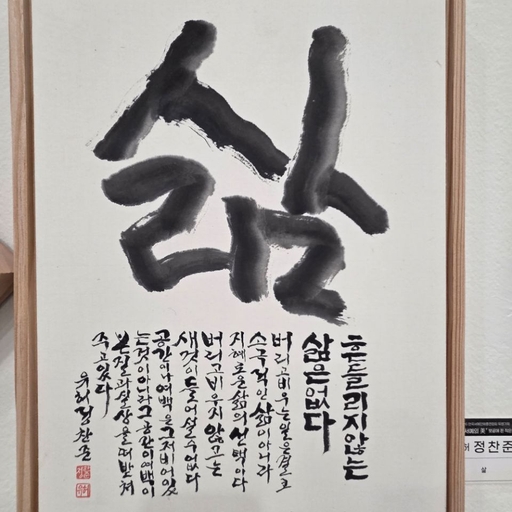 삶
흔들리지않는
삶은없다
버리고비우는일은결코
소극적인삶이아니라
지혜로운삶의선택이다
버리고비우지않고는
새것이들어설수없다
공간이나여백은그저비어있
는것이아니라그공간이여백이
본질과실상을떠받쳐
주고있다
정찬준
허 정찬준
삶